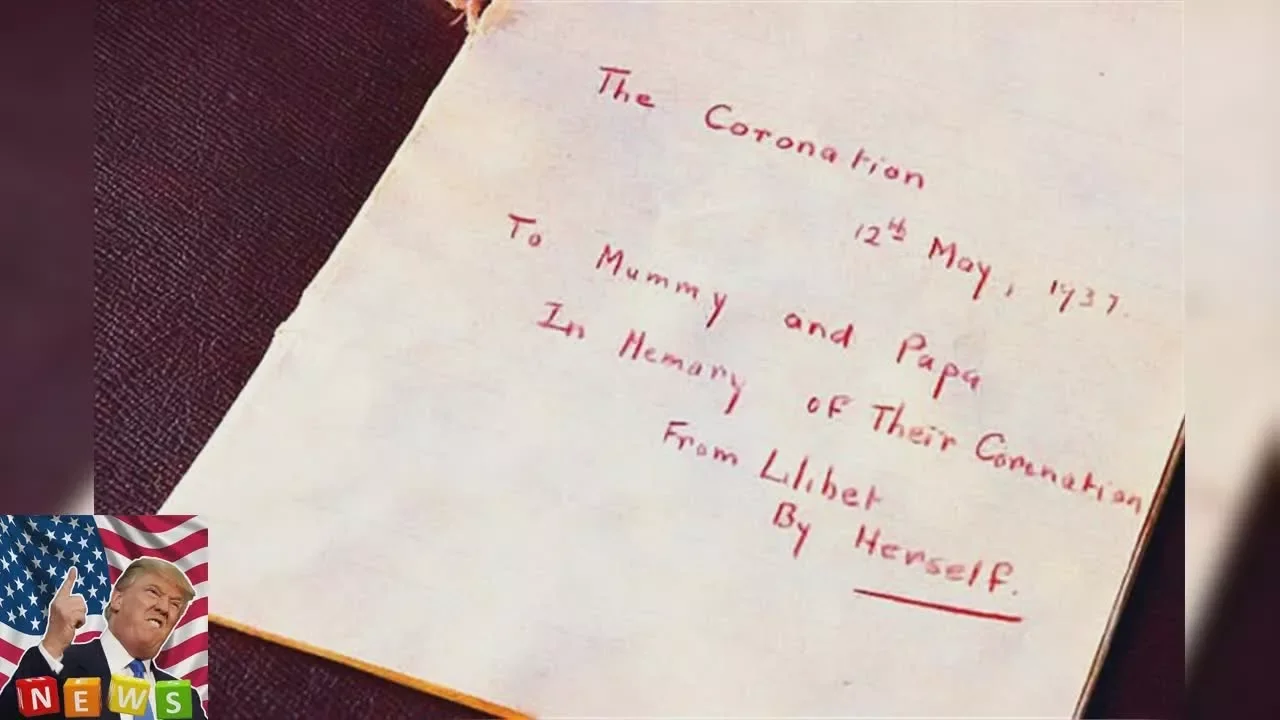 The Coronation
12th May, 1937.
To Mummy and Papa
In Memary of Their Coronation
From Lilibet
By Herself.
NEWS